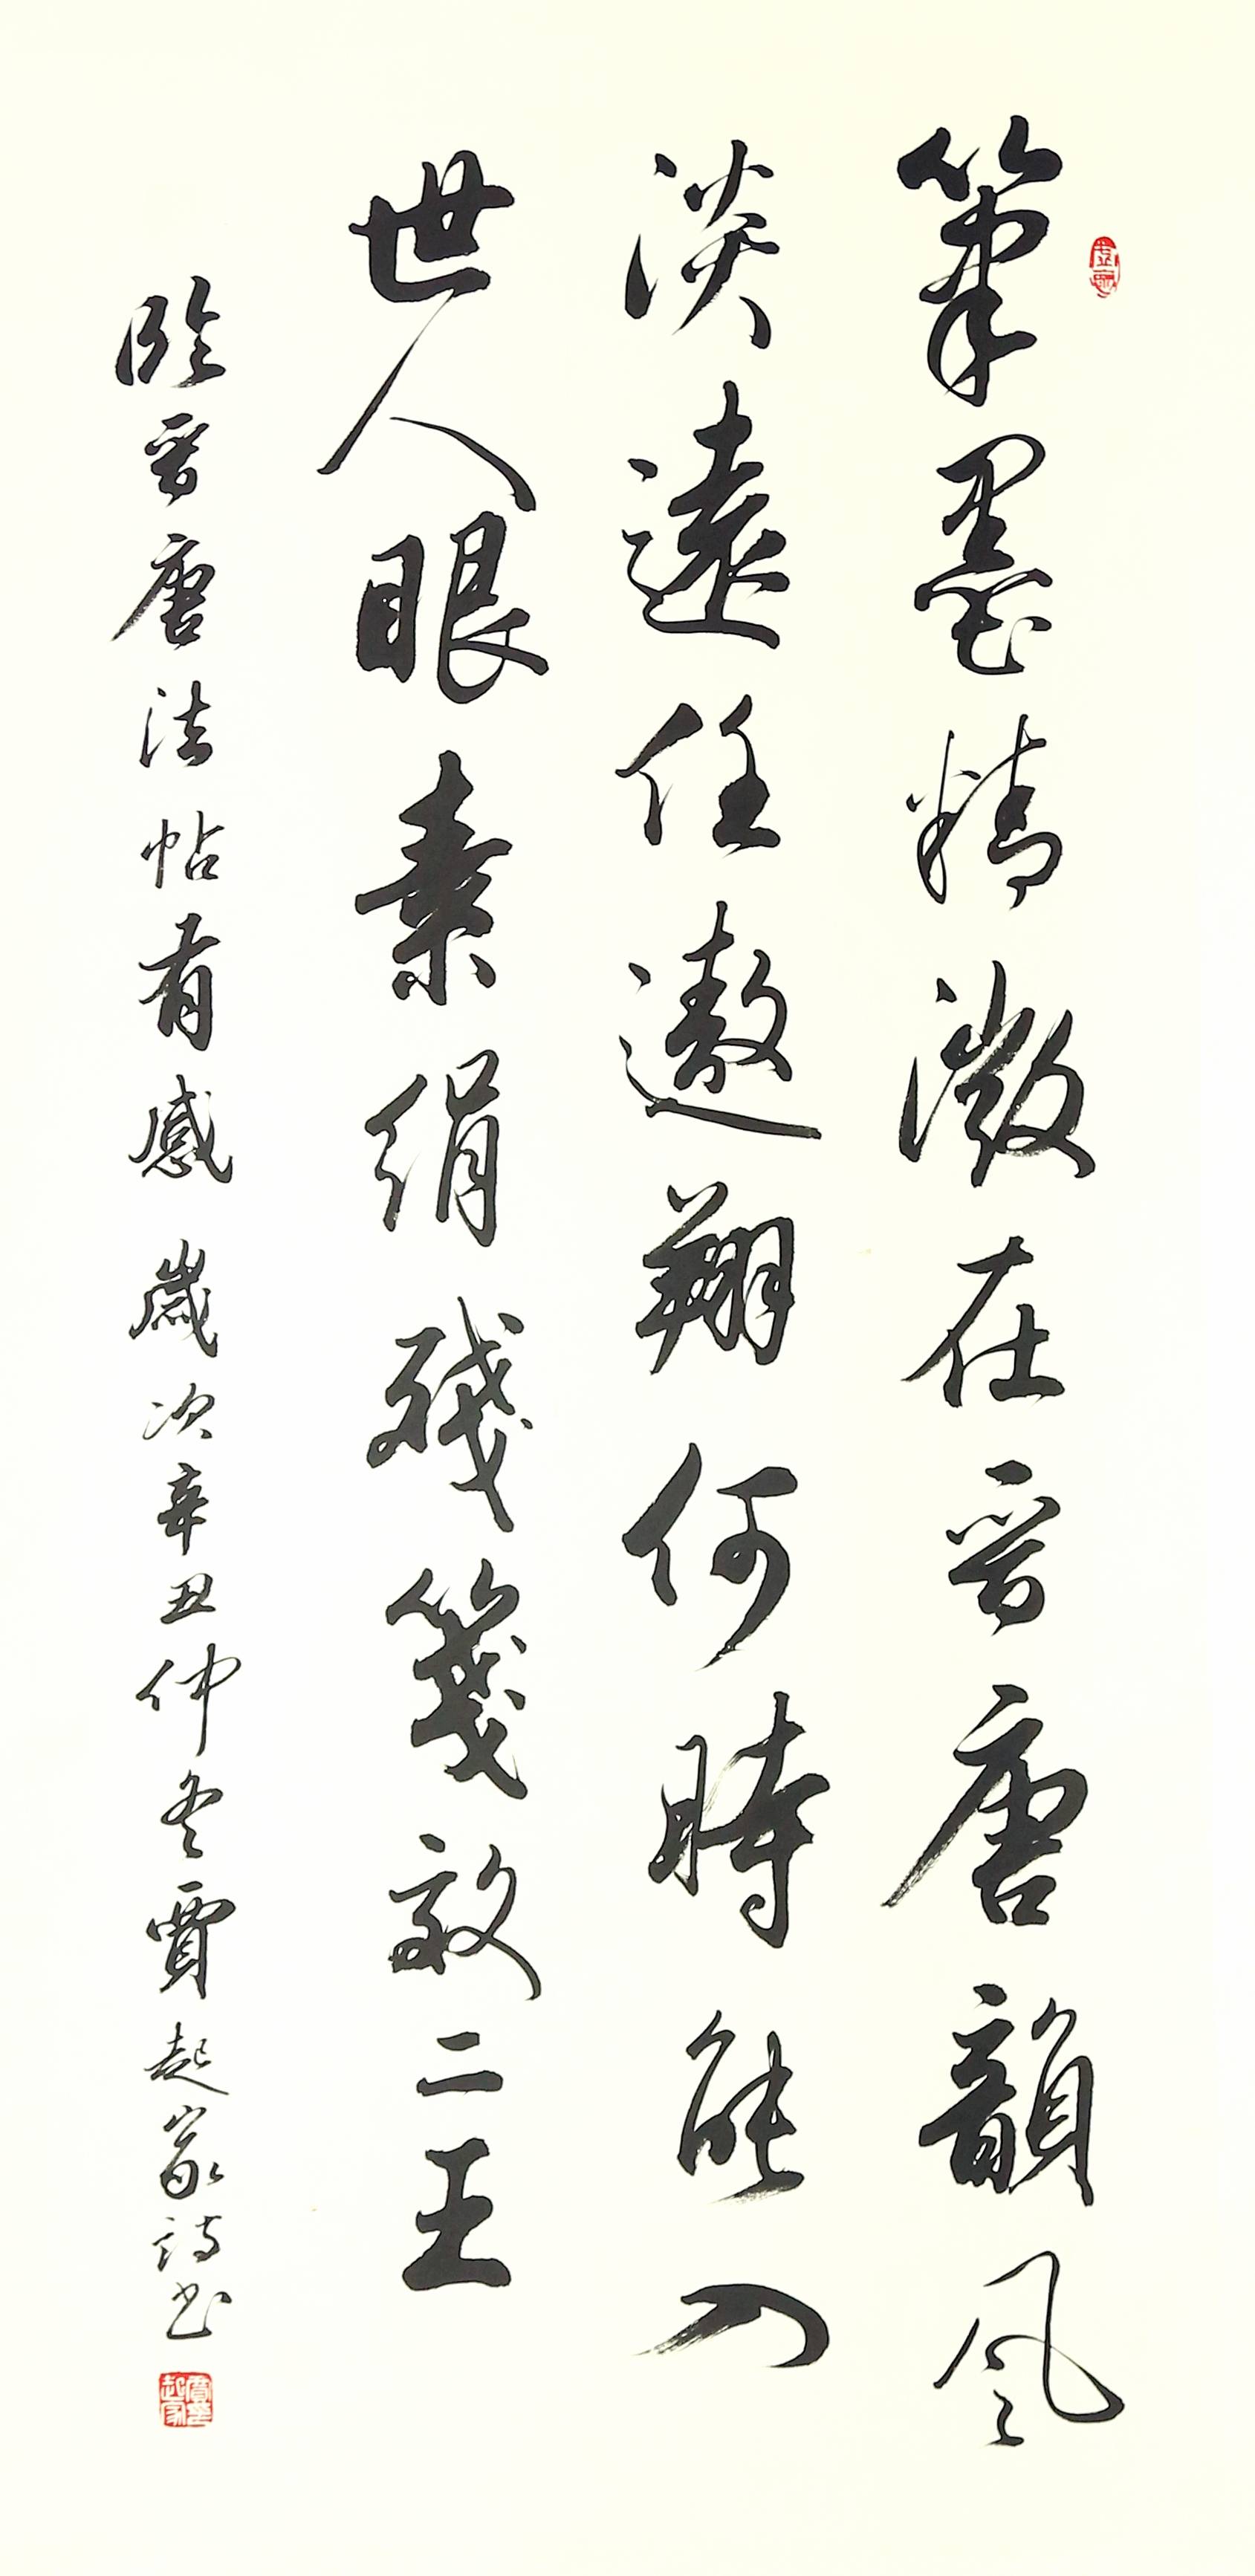 筆墨精微在晉唐韻風
淡遠任遨翔何時能入
世人眼素絹殘箋敵二王
臨晉唐法帖有感歲次辛丑仲冬賈起家詩书